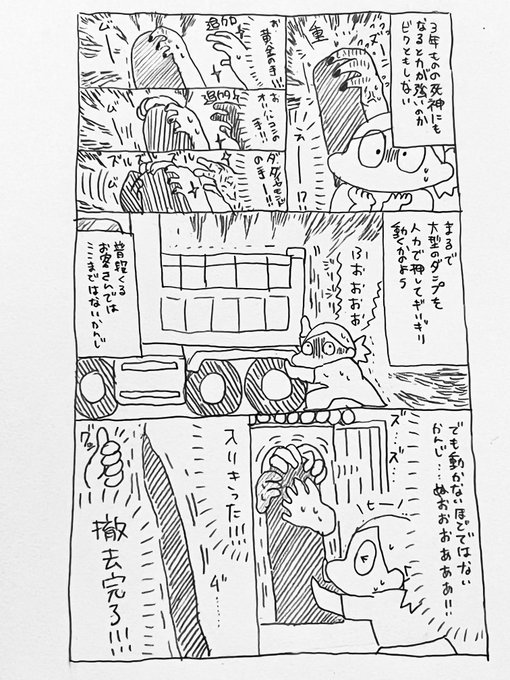 3年ものの死神にも
なると力が強いのか
ビクともしない
重
ズ…ン…
お黄金の手!!!
追加
ムー
お
オリハルコンの
手!!!
追加
ダイヤモンド
の手ー!!!
ズル
ズル
ム
まるで
大型のダンプを
人力で押してギリギリ
動くかのよう
ふおおおお
普段くる
お客さんでは
ここまではないかんじ
でも動かないほどではない
かんじ…ぬおおおぁぁぁ!!
ズ…ズ…
ヒー
入りきった!!!
グッ
撤去完了!!!